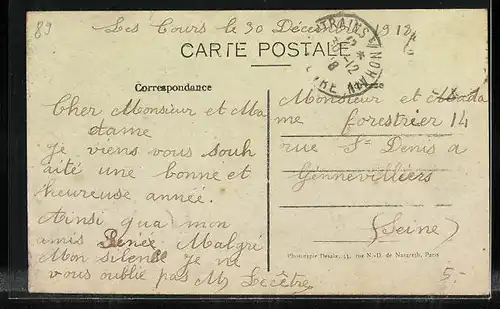 89
Les Cours le 30 Décembre 1912
CARTE POSTALE
Correspondance
Cher Monsieur et Ma
dame
Je viens vous souh
aité une bonne et
heureuse année.
Ainsi qua mon
amis Renée. Malgré
Mon silence je ne
vous oublié pas M Lecêtre
Monsieur et Mada
me forestrier 14
rue St Denis a
Génnevilliers
(Seine)
Phototypie Desaix, 11, rue N.-D. de Nazareth, Paris
5-